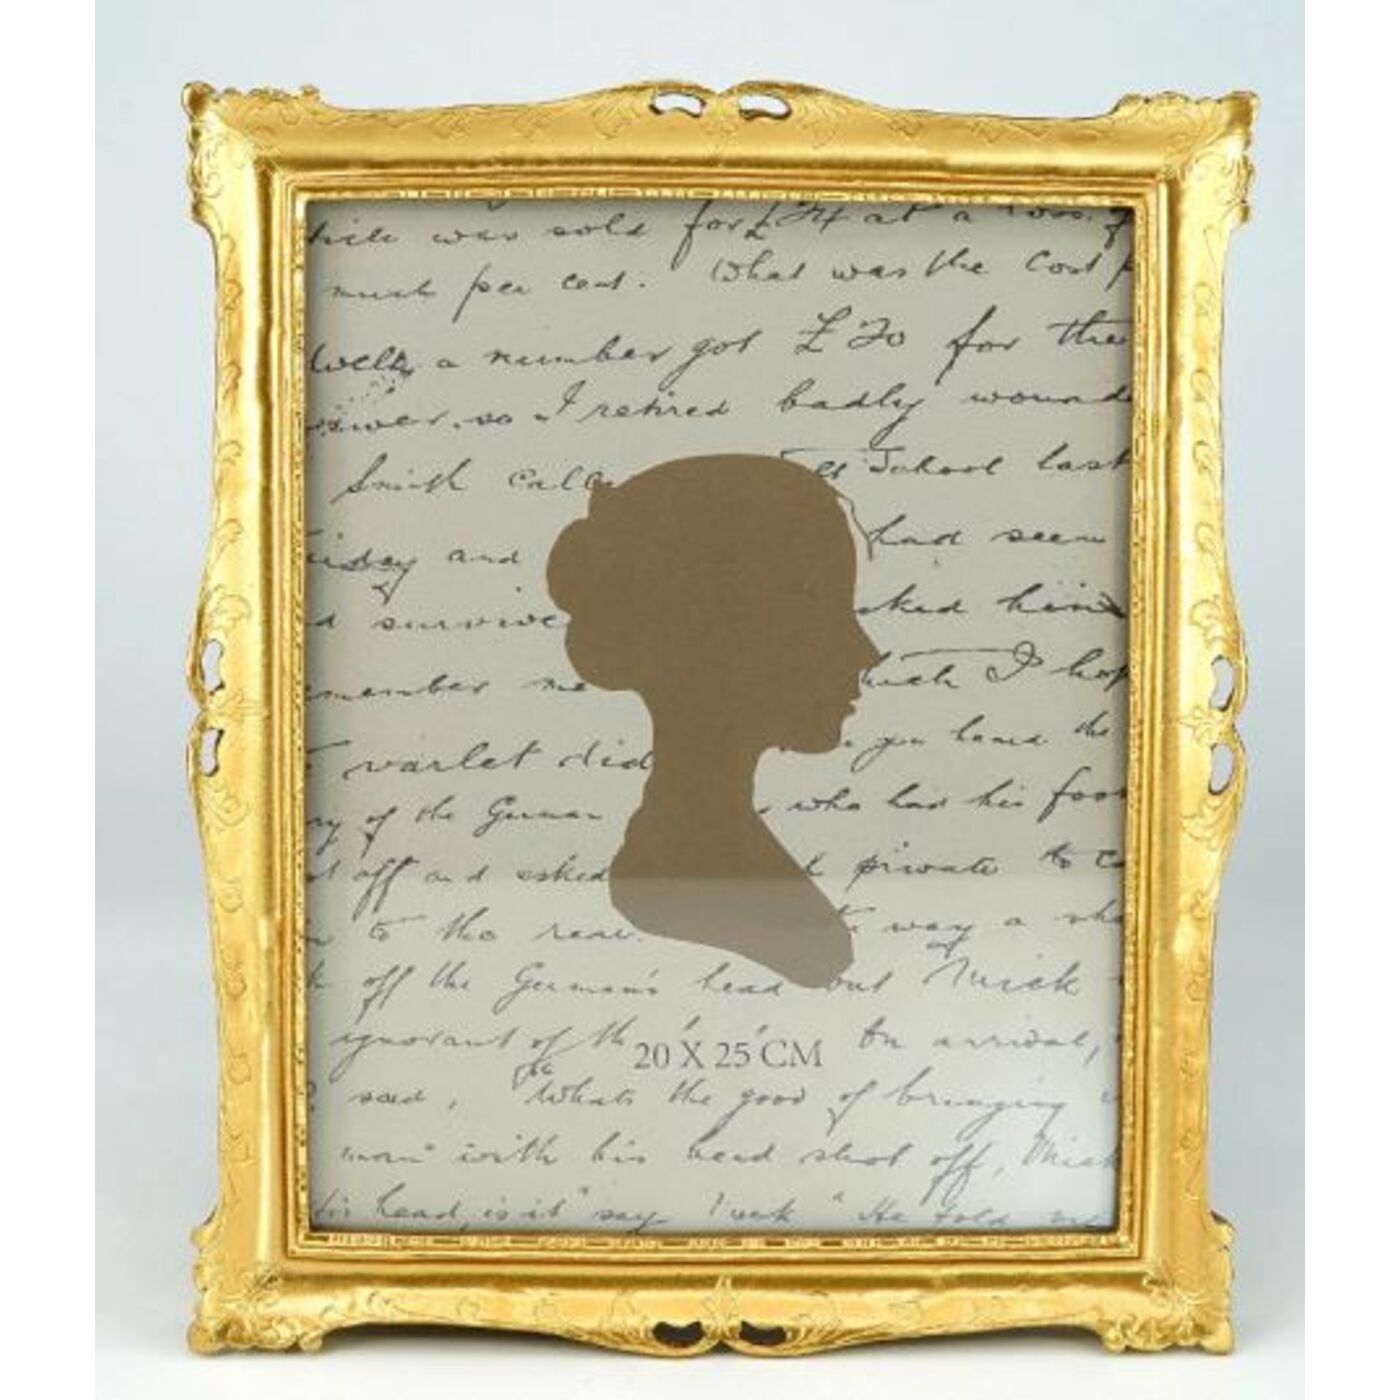 was sold for £74 at a loss of
much per cent. What was the cost p
Well, a number got £70 for the
so I retired badly wound
Smith Calle School last
and had seen
d survive sked him
member me hich I hop
varlet did you land the
ry of the German who had his foot
t off and asked t private to ca
to the rear. way a sho
k off the German's head but Mick
ignorant of th On arrival,
20 X 25 CM
said, "Whats the good of bringing
man" with his head shot off, Mick
his head, is it" say "He told me